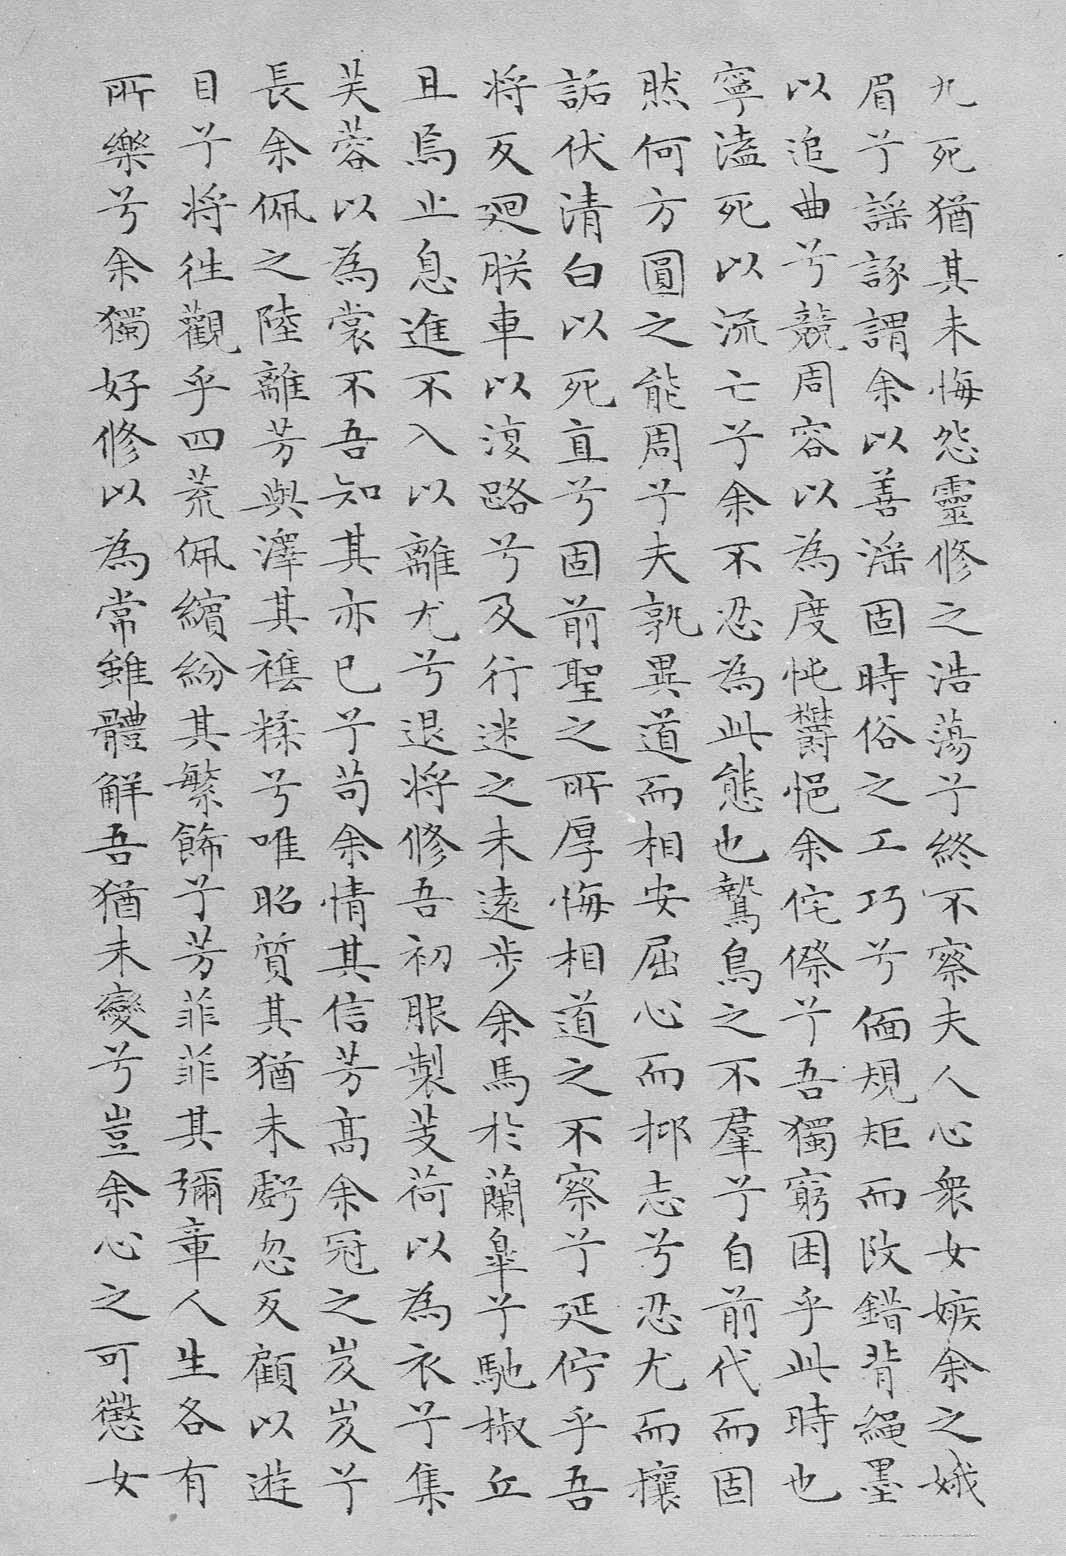 九死猶其未悔怨靈修之浩蕩兮終不察夫人心衆女嫉余之娥
眉兮謡諑謂余以善滛固時俗之工巧兮偭規矩而改錯背繩墨
以追曲兮競周容以為度忳鬱悒余侘傺兮吾獨窮困乎此時也
寧溘死以流亡兮余不忍為此態也鷙鳥之不羣兮自前代而固
然何方圓之能周兮夫孰異道而相安屈心而抑志兮忍尤而攘
詬伏清白以死直兮固前聖之所厚悔相道之不察兮延佇乎吾
將反廻朕車以復路兮及行迷之未遠步余馬於蘭皐兮馳椒丘
且焉止息進不入以離尤兮退將修吾初服製芰荷以為衣兮集
芙蓉以為裳不吾知其亦已兮苟余情其信芳髙余冠之岌岌兮
長余佩之陸離芳與澤其襍糅兮唯昭質其猶未虧忽反顧以遊
目兮將往觀乎四荒佩繽紛其繁飾兮芳菲菲其彌章人生各有
所樂兮余獨好修以為常雖體解吾猶未變兮豈余心之可懲女